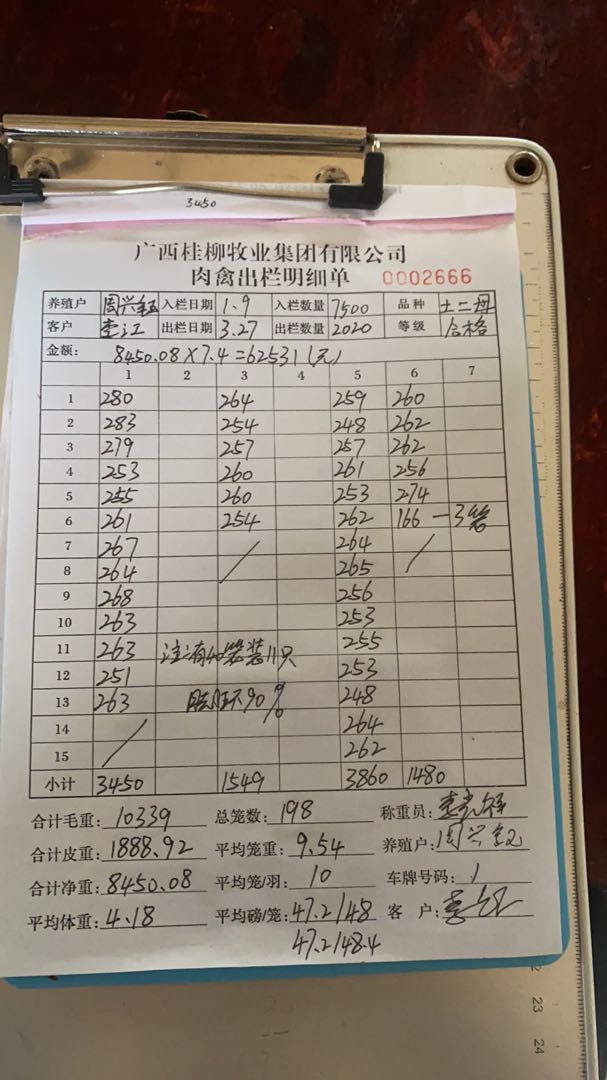 3450
广西桂柳牧业集团有限公司
肉禽出栏明细单 0002666
养殖户 周兴钰 入栏日期 1.9 入栏数量 7500 品种 土二母
客户 李江 出栏日期 3.27 出栏数量 2020 等级 合格
金额: 8450.08×7.4=62531(元)
1 2 3 4 5 6 7
1 280 264 259 260
2 283 254 248 262
3 279 257 257 262
4 253 260 261 256
5 255 260 253 274
6 261 254 262 166 — 3笼
7 267 / 264 /
8 264 265
9 268 256
10 263 253
11 263 注:有40笼装11只 255
12 251 253
13 263 90% 248
14 / 264
15 262
小计 3450 1549 3860 1480
合计毛重: 10339 总笼数: 198 称重员:
合计皮重: 1888.92 平均笼重: 9.54 养殖户: 周兴钰
合计净重: 8450.08 平均笼/羽: 10 车牌号码: 1
平均体重: 4.18 平均磅/笼: 47.2/48 客 户: 李江
47.2/48.4
22
23
24